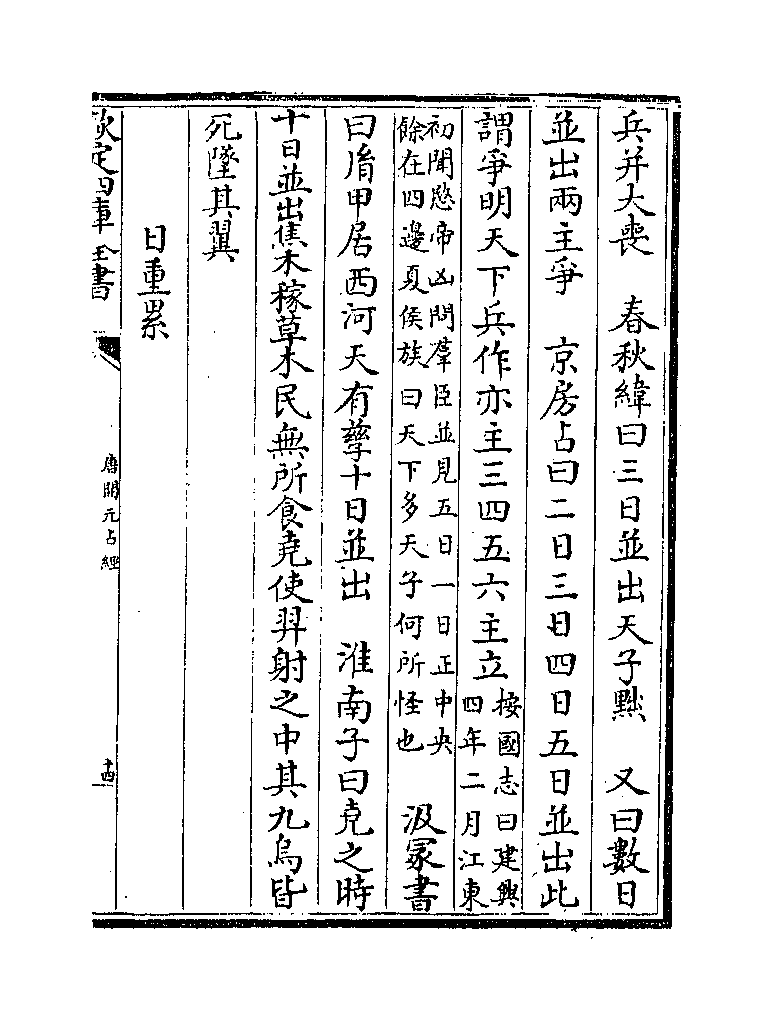 兵并大喪　春秋緯曰三日並出天子黜　又曰數日
並出兩主爭　京房占曰二日三日四日五日並出此
謂爭明天下兵作亦主三四五六主立按國志曰建興
四年二月江東
初聞愍帝凶問羣臣並見五日一日正中央
餘在四邊夏侯族曰天下多天子何所怪也　汲冢書
曰胤甲居西河天有孽十日並出　淮南子曰堯之時
十日並出焦木稼草木民無所食堯使羿射之中其九烏皆
死墜其翼
日重累
欽定四庫全書
唐開元占經
十四